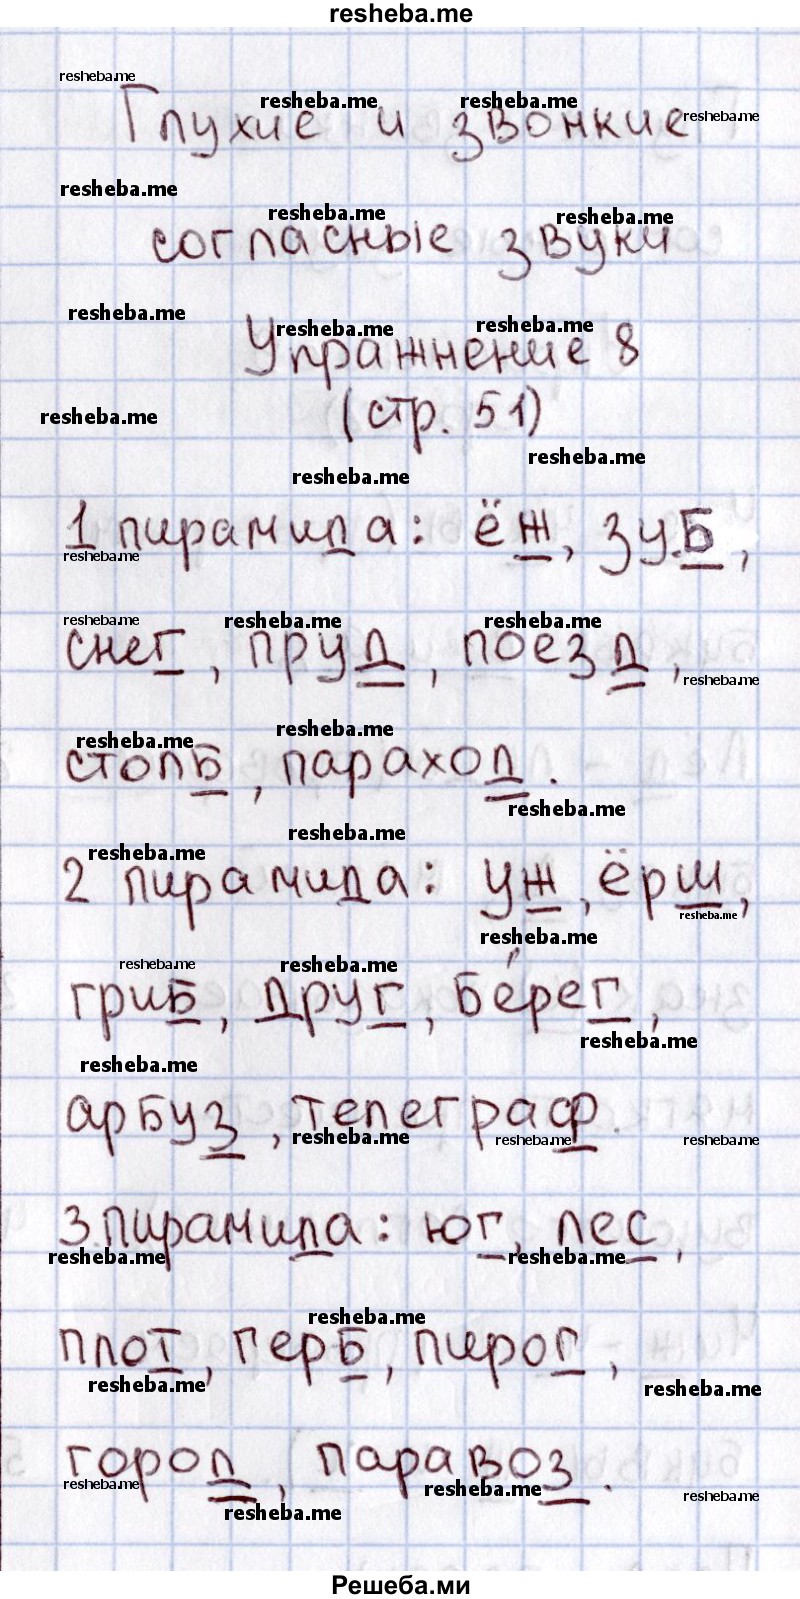 resheba.me
resheba.me
resheba.me resheba.me
Глухие и звонкие resheba.me
resheba.me
resheba.me resheba.me
согласные звуки
resheba.me
resheba.me resheba.me
Упражнение 8
resheba.me (стр. 51)
resheba.me
resheba.me
1 пирамида: ёж, зуб,
resheba.me
resheba.me resheba.me resheba.me
снег, пруд, поезд,
resheba.me
resheba.me resheba.me
столб, параход.
resheba.me
resheba.me
resheba.me
2 пирамида: уж, ёрш,
resheba.me
resheba.me
resheba.me resheba.me
гриб, друг, берег,
resheba.me
resheba.me
арбуз, телеграф.
resheba.me resheba.me resheba.me
3.пирамида: юг, лес,
resheba.me resheba.me
resheba.me
плот, герб, пирог,
resheba.me resheba.me
город, паравоз.
resheba.me resheba.me resheba.me
resheba.me
Решеба.ми